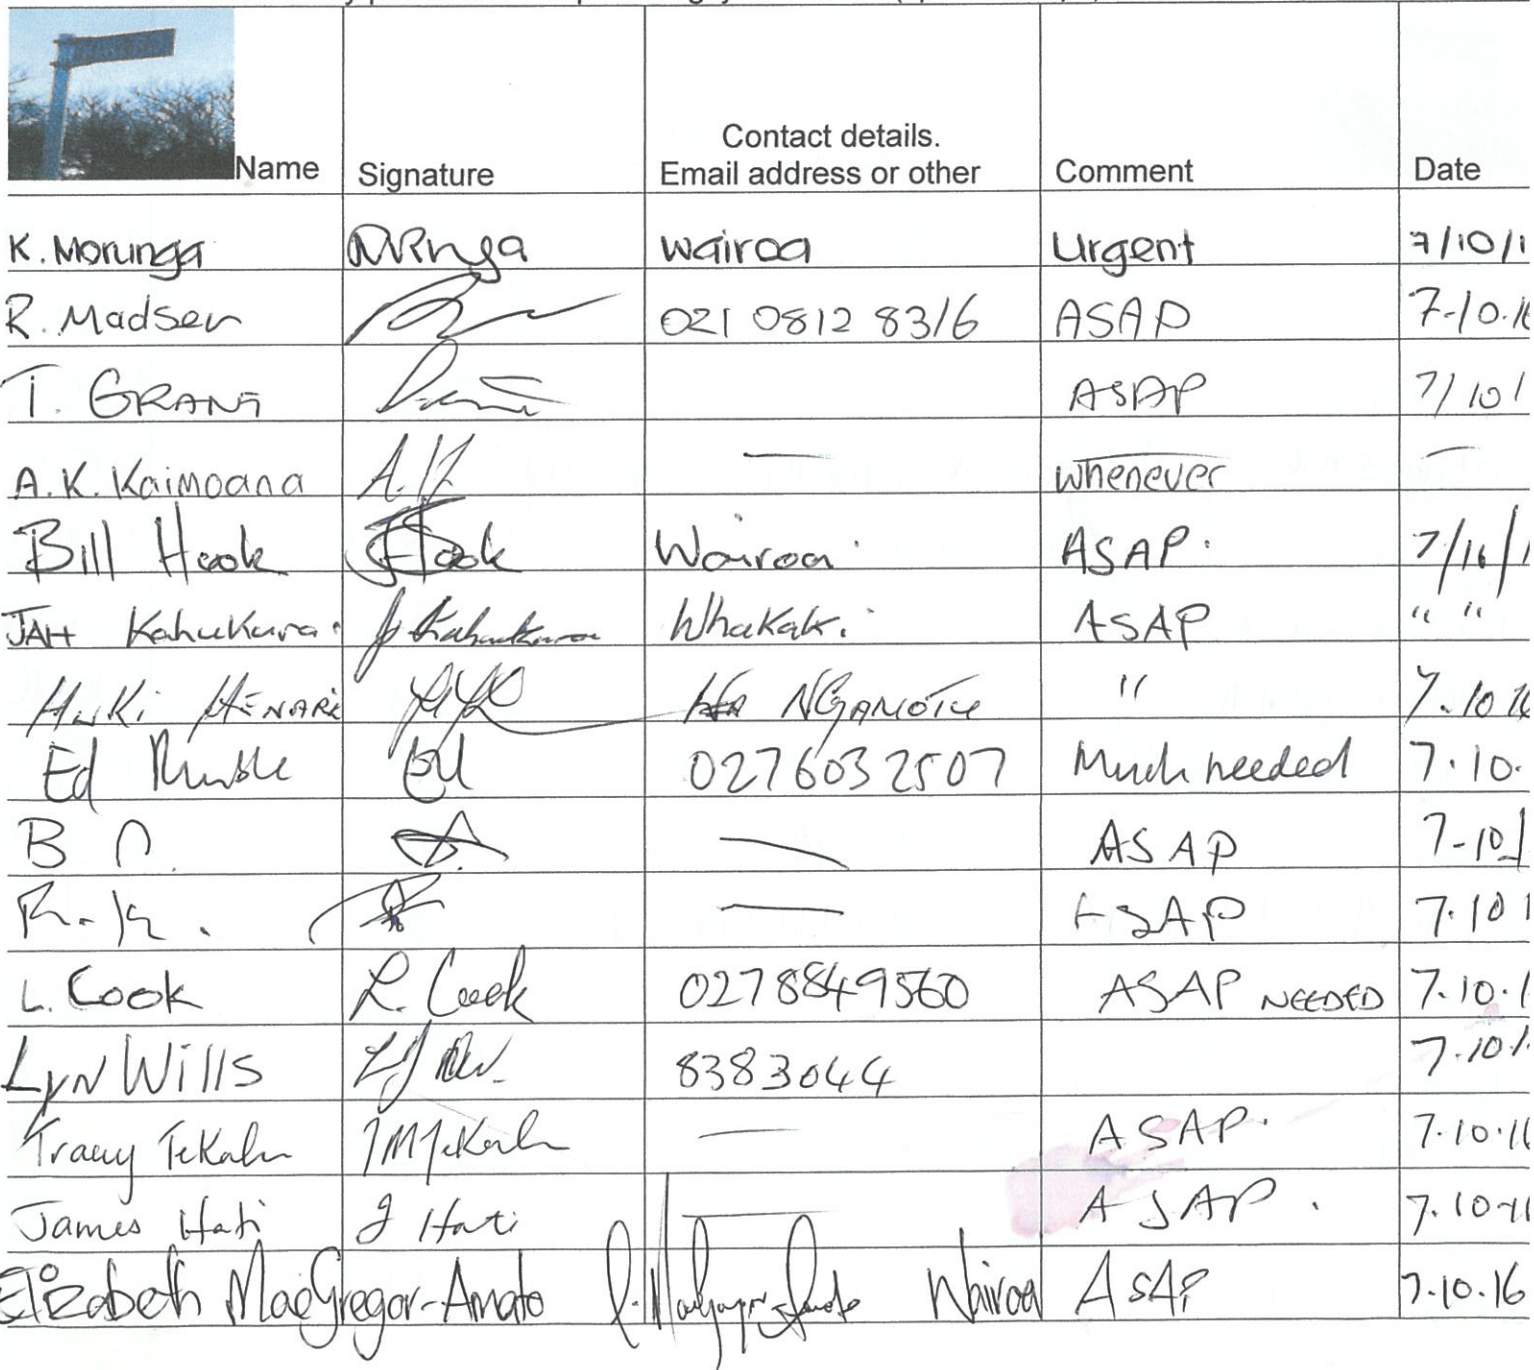 Name Signature Contact details. Email address or other Comment Date
K. Morunga wairoa Urgent 7/10/1
R. Madsen 021 0812 8316 ASAP 7-10.16
T. GRANT ASAP 7/10/
A.K. Kaimoana A.K — whenever —
Bill Hook Hook Wairoa ASAP. 7/10/1
JAH Kahukura J Kahukura Whakaki. ASAP " "
Huki HENARE " 7.10 16
Ed 0276032507 Much needed 7.10.
B — ASAP 7-10
R. K. — ASAP 7.10 1
L. Cook L. Cook 0278849560 ASAP NEEDED 7.10.1
Lyn Wills 8383044 7.10.1
Tracy TeKahu — ASAP. 7.10.16
James Hati J Hati — ASAP. 7.10.16
Elizabeth MacGregor-Amato Wairoa ASAP 7.10.16